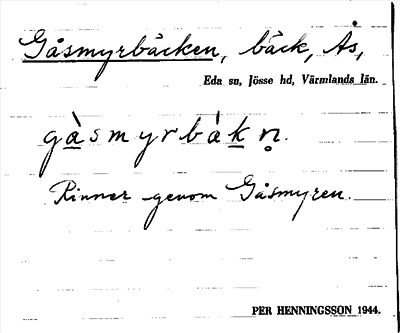 Gåsmyrbäcken, bäck, Ås,
Eda sn, Jösse hd, Värmlands län.
gàsmyrbákn.
Rinner genom Gåsmyren.
PER HENNINGSSON 1944.